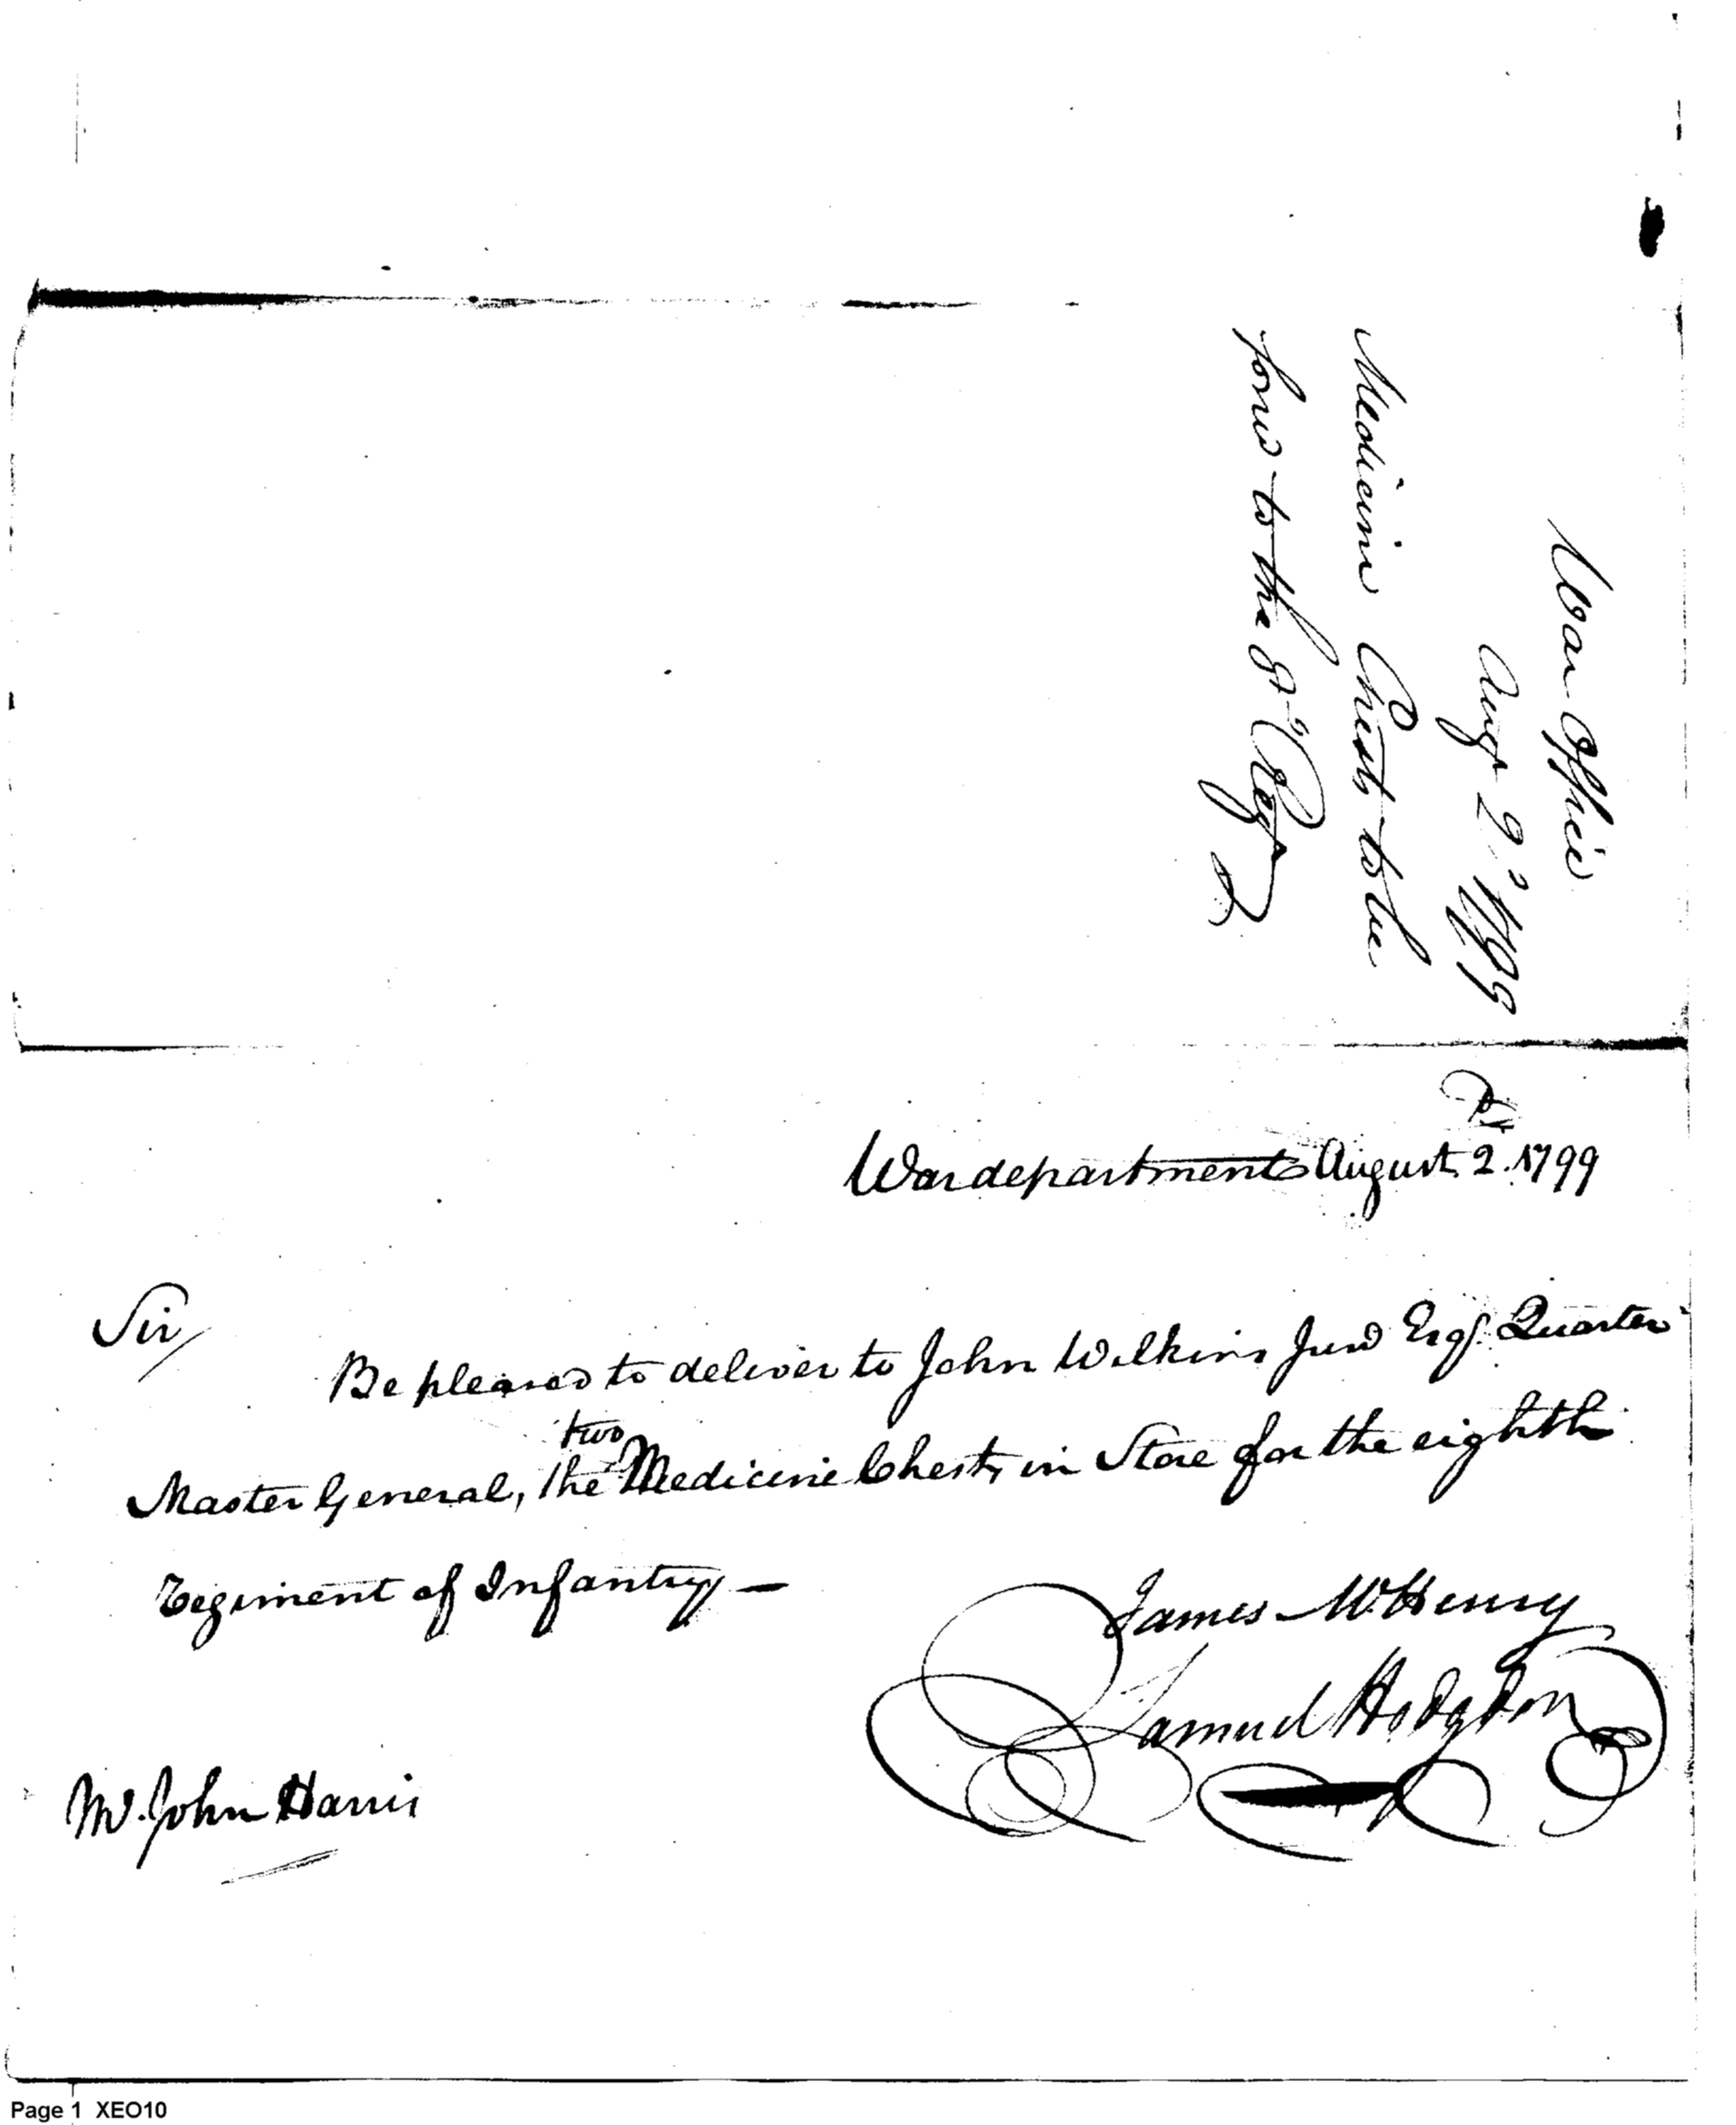 War Office
Augt 2d 1799
Medicine Chest to be
forwd to the 8th Regt
War department August 2d. 1799
Sir/
Be pleased to deliver to John Wilkins Junr Esqr. Quarter
two
Master General, the Medicine Chests in Store for the eighth
regiment of Infantry —
James McHenry
Samuel Hodgdon
Mr. John Harris
Page 1 XEO10